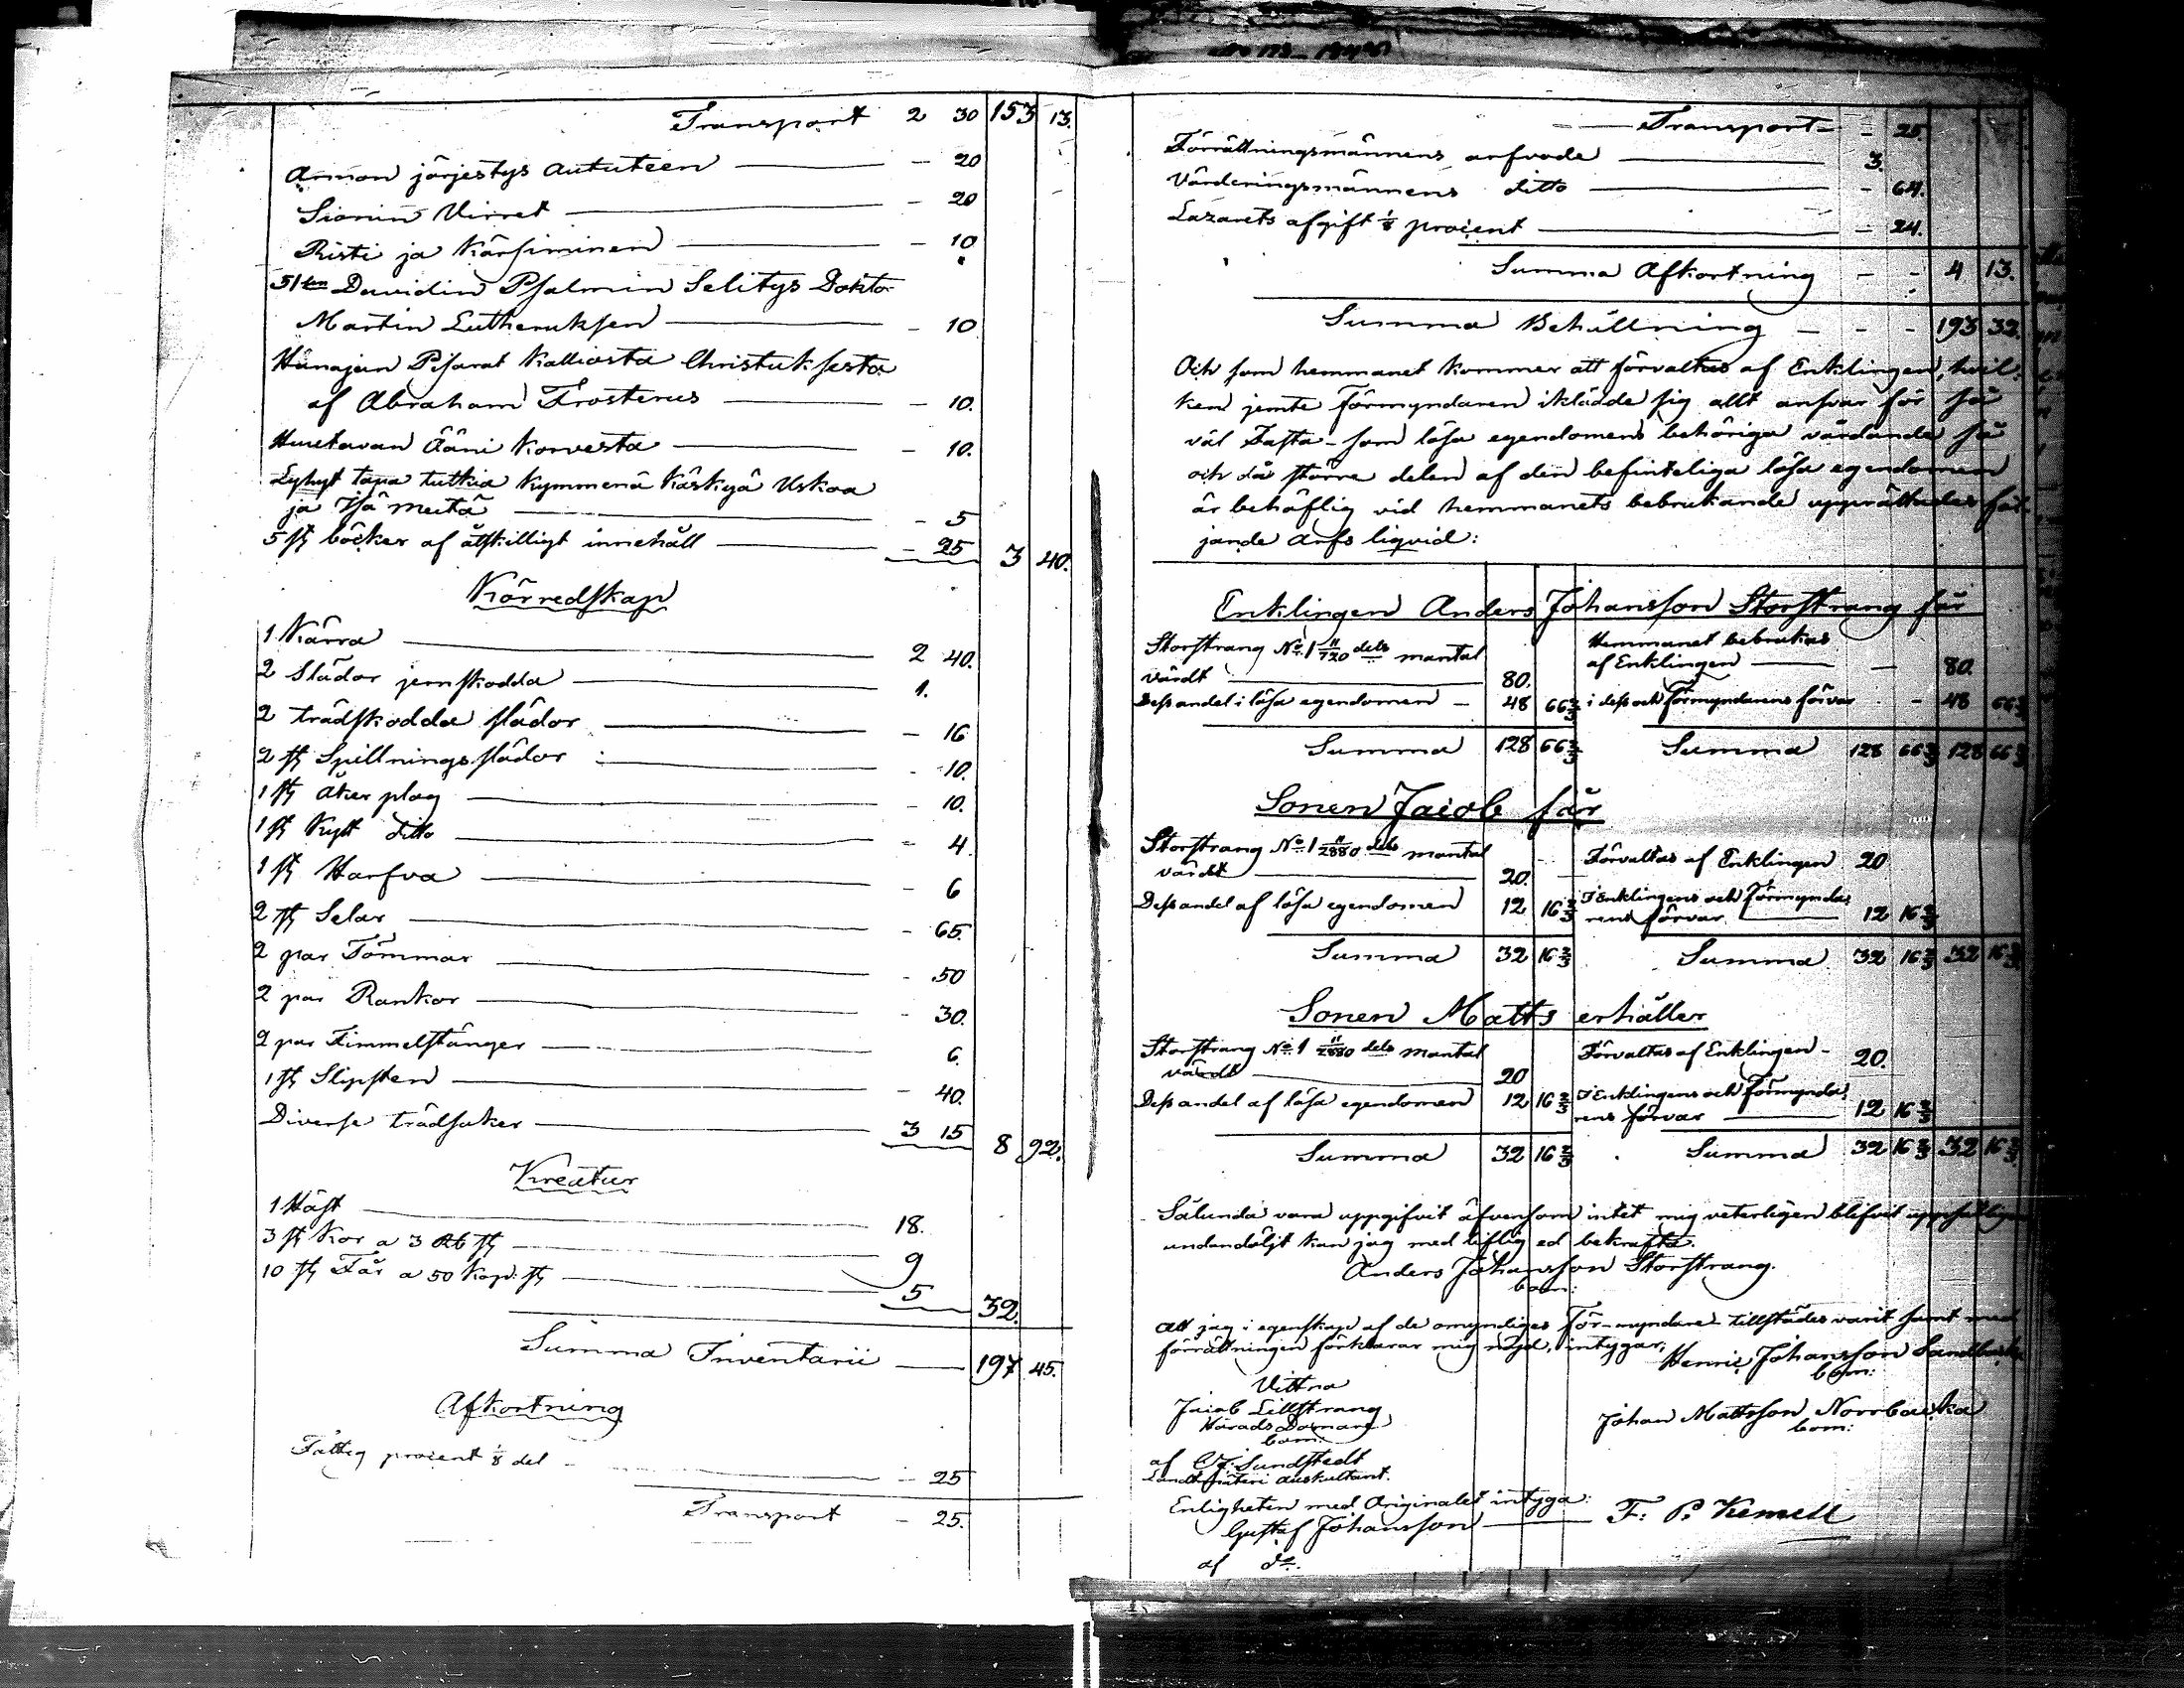 Transport 2 30 153 13.
Armon järjestys Aututeen — 20
Sionin Virret — 20
Risti ja Kärsiminen — 10
51 ten Davidin Psalmin Selitys Doktor
Martin Lutheruksen — 10
Hunajan Pisarat Kalliosta Christuksesta
af Abraham Frosterus — 10.
Huutavan Ääni Korvesta — 10.
Lyhyt tapa tutkia Kymmenä Käskyä Uskoa
ja Isä meitä — 5
5 st böcker af åtskilligt innehåll — 25 3 40.
Körredskap
1 Kärra 2 40.
2 Slädor jernskodda 1.
2 trädskodda slädor — 16
2 st Spillningsslädor — 10.
1 st Åker plog — 10.
1 st Kytt ditto — 4
1 st Harfva — 6
2 st Selar — 65.
2 par Tömmar — 50
2 par Rankor — 30.
2 par Fimmelstänger 6.
1 st Slipsten — 40.
Diverse trädsaker 3 15 8 92.
Kreatur
1 Häst 18.
3 st Kor a 3 Rb st 9
10 st Får a 50 Kop. st 5 32.
Summa Inventarii — 197 45.
Afkortning
Fattig procent 1/8 del — 25
Transport — 25.
Transport — 25.
Förrättningsmännens arfvode 3.
Värderingsmännens ditto — 64.
Lazarets afgift 1/8 procent — 24.
Summa Afkortning — - 4 13.
Summa Behållning — - - 193 32.
Och som hemmanet kommer att förvaltas af Enklingen, hvil-
ken jemte Förmyndaren iklädde sig allt ansvar för så
väl Fasta- som lösa egendomens behöriga vårdande så
och då större delen af den befinteliga lösa egendomen
är behöflig vid hemmanets bebrukande upprättades föl-
jande Arfs liqvid:
Enklingen Anders Johansson Storstrang får
Storstrang No 1 11/720 dels mantal
värdt 80.
Hemmanet bebrukas
af Enklingen — 80.
Dess andel i lösa egendomen — 48 66 2/3 i dess och Förmyndarens förvar - 48 66 2/3
Summa 128 66 2/3 Summa 128 66 2/3 128 66 2/3
Sonen Jacob får
Storstrang No 1 11/2880 dels mantal
värdt 20.
Förvaltas af Enklingen 20
Dess andel af lösa egendomen 12 16 2/3
I Enklingens och Förmynda-
rens förvar 12 16 2/3
Summa 32 16 2/3 Summa 32 16 2/3 32 16 2/3
Sonen Matts erhåller
Storstrang No 1 11/2880 dels mantal
värdt 20
Förvaltas af Enklingen - 20.
Dess andel af lösa egendomen 12 16 2/3
I Enklingens och Förmynda-
rens förvar 12 16 2/3
Summa 32 16 2/3 Summa 32 16 2/3 32 16 2/3
Sålunda vara uppgifvit äfvensom intet mig veterligen blifvit uppsåtligen
undandöljt kan jag med liflig ed bekräfta.
Anders Johansson Storstrang.
bom:
Att jag i egenskap af de omyndiges För-myndare tillstädes varit samt med
förrättningen förklarar mig nöjd, intygar,
Henric Johansson
bom:
Vittna
Jacob Lillstrang
Härads Domare
bom:
Johan Mattsson Norrbacka
bom:
af C. J. Sundstedt
Landtmäteri Auskultant.
Enligheten med Originalet intyga:
Gustaf Johansson — F. P. Kemell
af do.